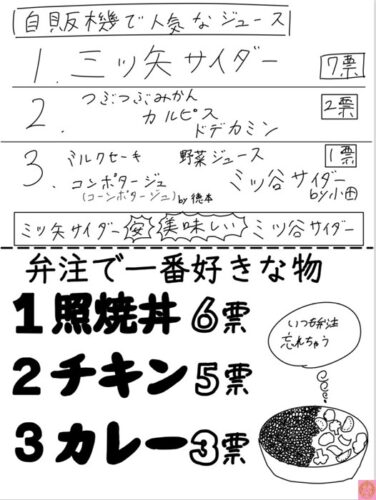 自販機で人気なジュース
1. 三ッ矢サイダー 7票
2. つぶつぶみかん
カルピス
ドデカミン
2票
3. ミルクセーキ 野菜ジュース 1票
コンポタージュ ミッ谷サイダー
(コーンポタージュ) by徳本 by小田
ミッ矢サイダー 美味しい ミッ谷サイダー
弁注で一番好きな物
1 照焼丼 6票
2 チキン 5票
3 カレー 3票
いつも弁注
忘れちゃう